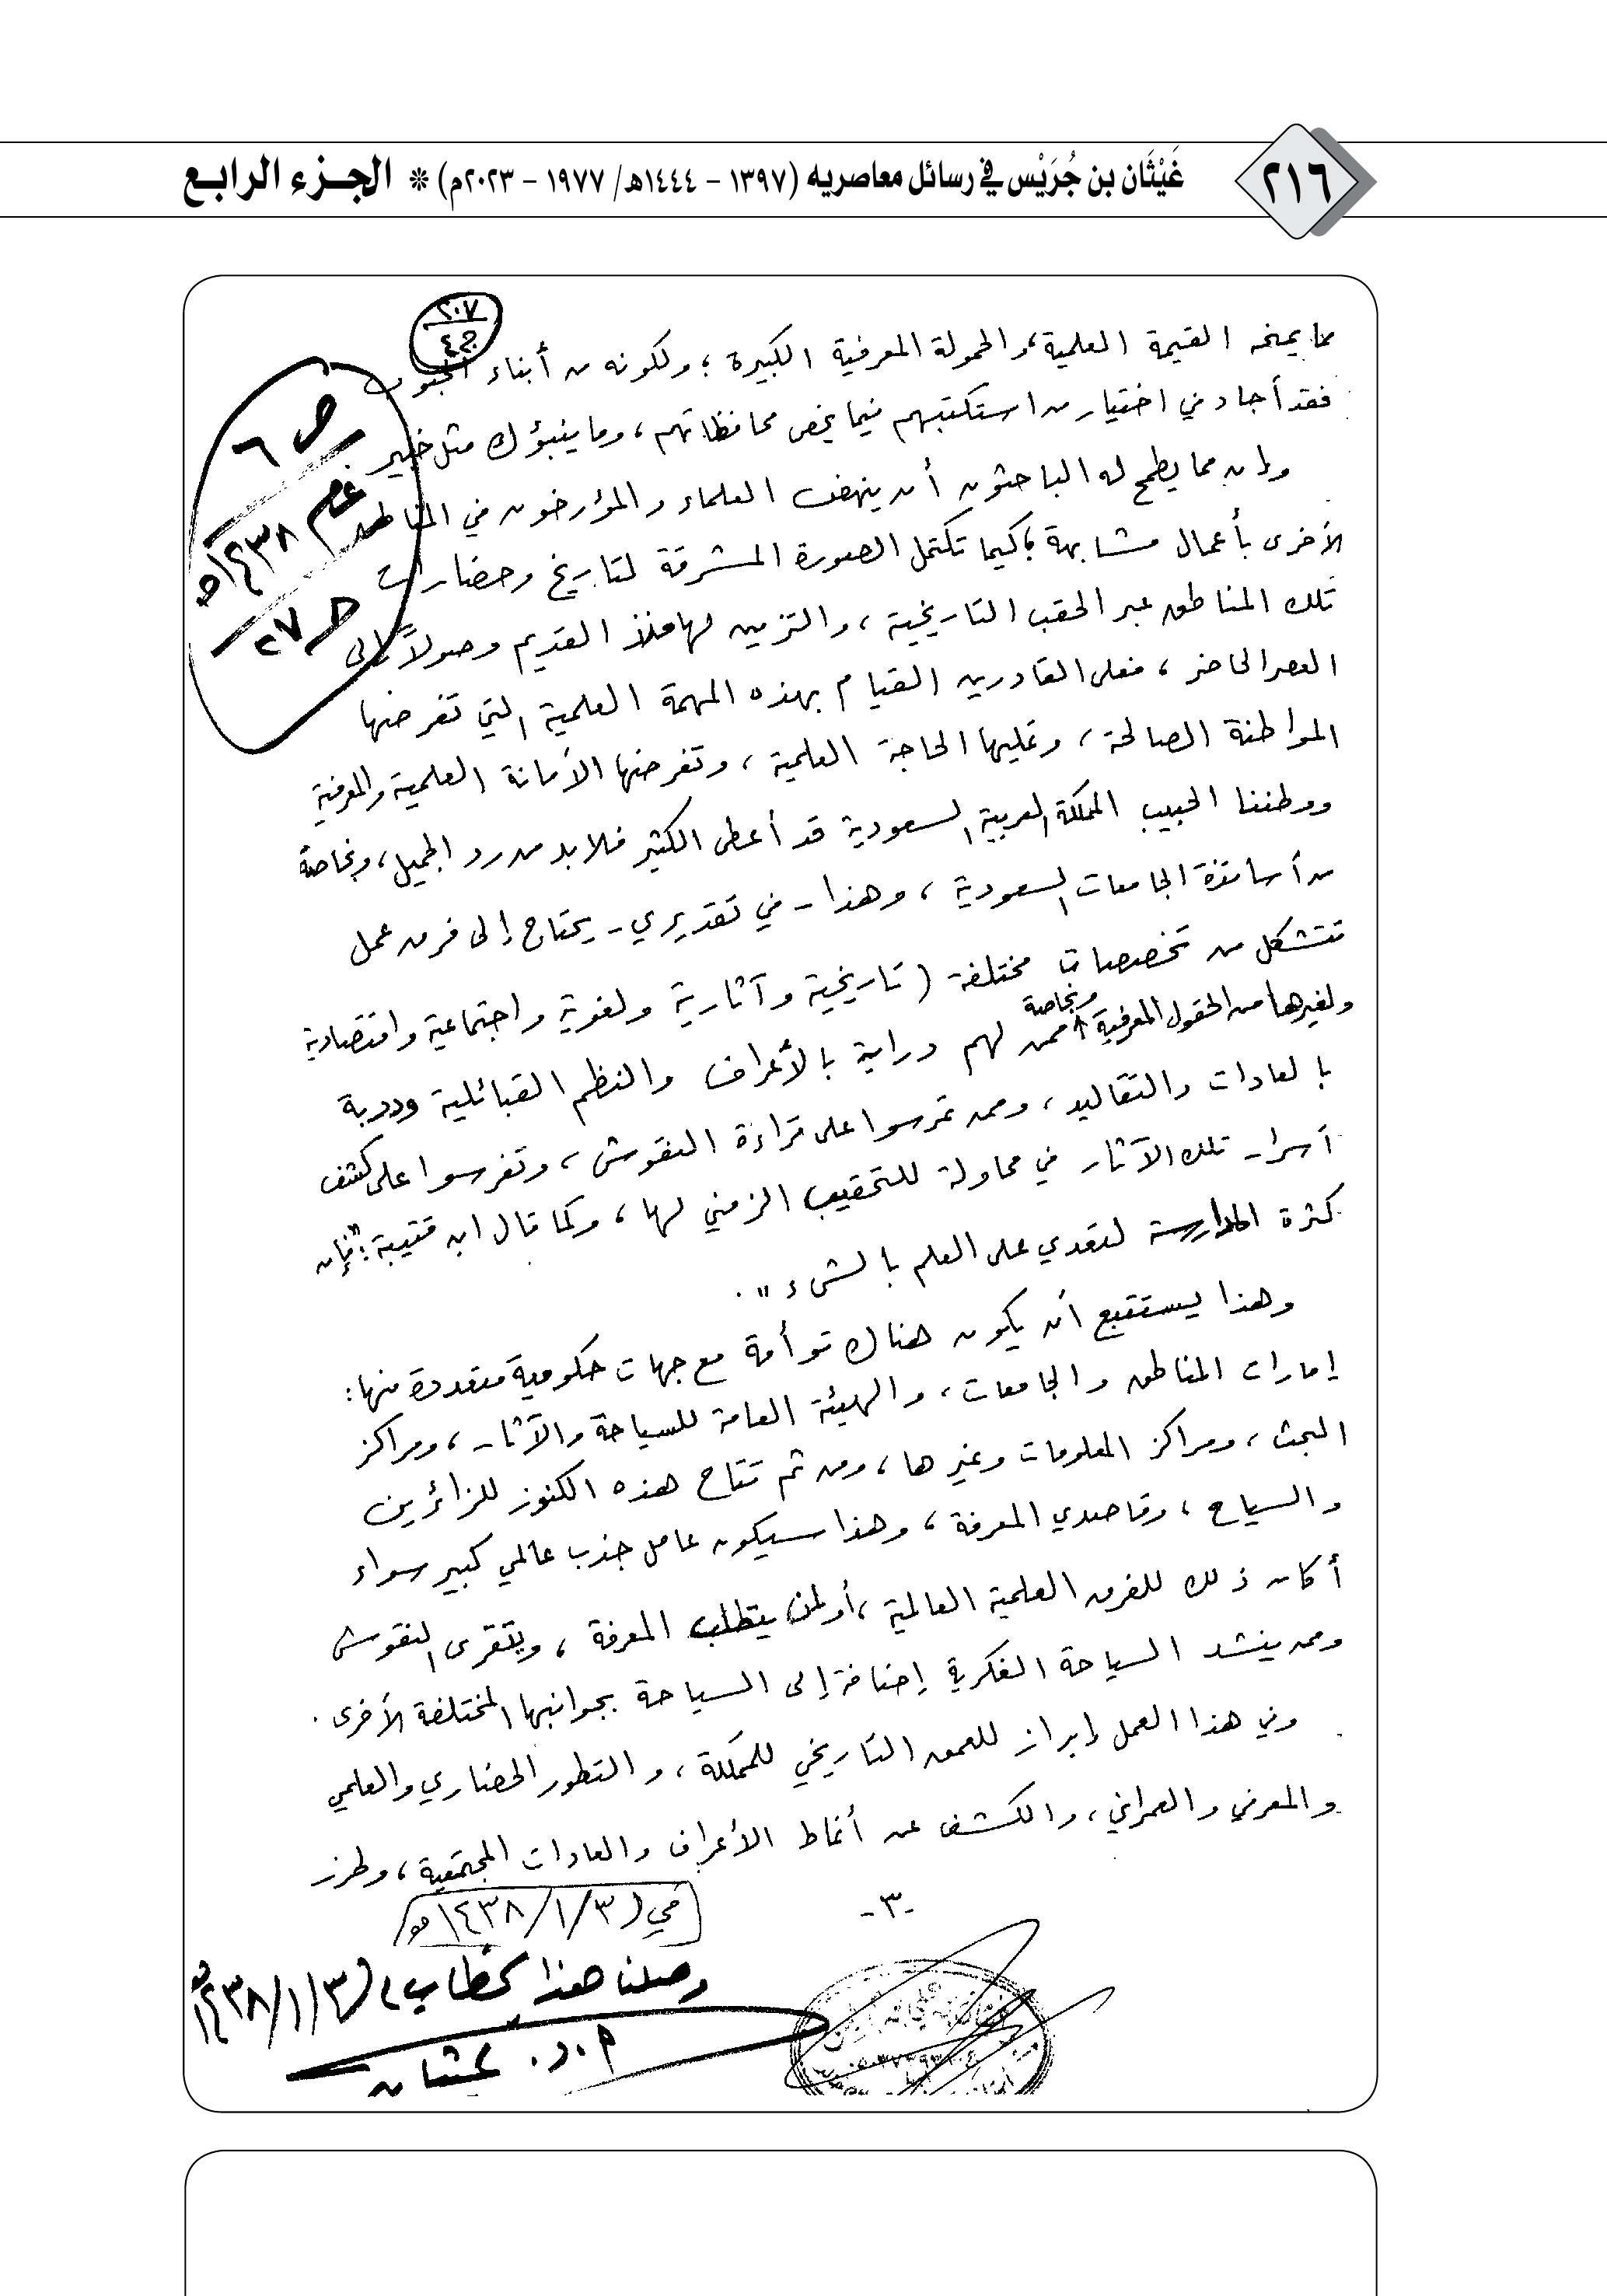 ٢١٦
غَيْثَان بن جُرَيْس في رسائل معاصريه (١٣٩٧ - ١٤٤٤هـ/ ١٩٧٧ - ٢٠٢٣م) * الجزء الرابع
٢٠٧
ج٤
مما يمنحه القيمة العلمية، والحمولة المعرفية الكبيرة ؛ ولكونه من أبناء الجنوب
فقد أجاد في اختيار من استكتبهم فيما يخص محافظاتهم ، وما ينبؤك مثل خبير .
وإن مما يطمح له الباحثون أن ينهض العلماء والمؤرخون في المناطق
الأخرى بأعمال مشابهة كيما تكتمل الصورة المشرقة لتاريخ وحضارات
تلك المناطق عبر الحقب التاريخية ، والتزمين لها منذ القديم وصولاً إلى
العصر الحاضر ، فعلى القادرين القيام بهذه المهمة العلمية التي تفرضها
المواطنة الصالحة ، وتمليها الحاجة العلمية ، وتفرضها الأمانة العلمية والمعرفية
ووطننا الحبيب المملكة العربية السعودية قد أعطى الكثير فلابد من رد الجميل، وبخاصة
من أساتذة الجامعات السعودية ، وهذا - في تقديري - يحتاج إلى فرق عمل
تتشكل من تخصصات مختلفة ( تاريخية وآثارية ولغوية واجتماعية واقتصادية
ولغيرها من الحقول المعرفية وبخاصة ممن لهم دراية بالأعراف والنظم القبائلية ودربة
بالعادات والتقاليد ، وممن تمرسوا على قراءة النقوش ، وتفرسوا على كشف
أسرار تلك الآثار في محاولة للتحقيب الزمني لها ، وكما قال ابن قتيبة : "فإن
كثرة المدارسة لتعدي على العلم بالشيء " .
وهذا يستتبع أن يكون هناك توأمة مع جهات حكومية متعددة منها :
إمارات المناطق والجامعات ، والهيئة العامة للسياحة والآثار ، ومراكز
البحث ، ومراكز المعلومات وغيرها ، ومن ثم تتاح هذه الكنوز للزائرين
والسياح ، وقاصدي المعرفة ، وهذا سيكون عامل جذب عالمي كبير سواء
أكان ذلك للفرق العلمية العالمية ، أو لمن يتطلب المعرفة ، ويتقرى النقوش
وممن ينشد السياحة الفكرية إضافة إلى السياحة بجوانبها المختلفة الأخرى .
وفي هذا العمل إبراز للعمق التاريخي للمملكة ، والتطور الحضاري والعلمي
والمعرفي والعمراني ، والكشف عن أنماط الأعراف والعادات المجتمعية ، وطرز
-٣-
في ( ٣ / ١ / ١٤٣٨هـ )
وصلنا هذا الخطاب في ( ٣ / ١ / ١٤٣٨هـ
أ . د . غيثان
ص ٦
عام ١٤٣٨هـ
ج ٢٧